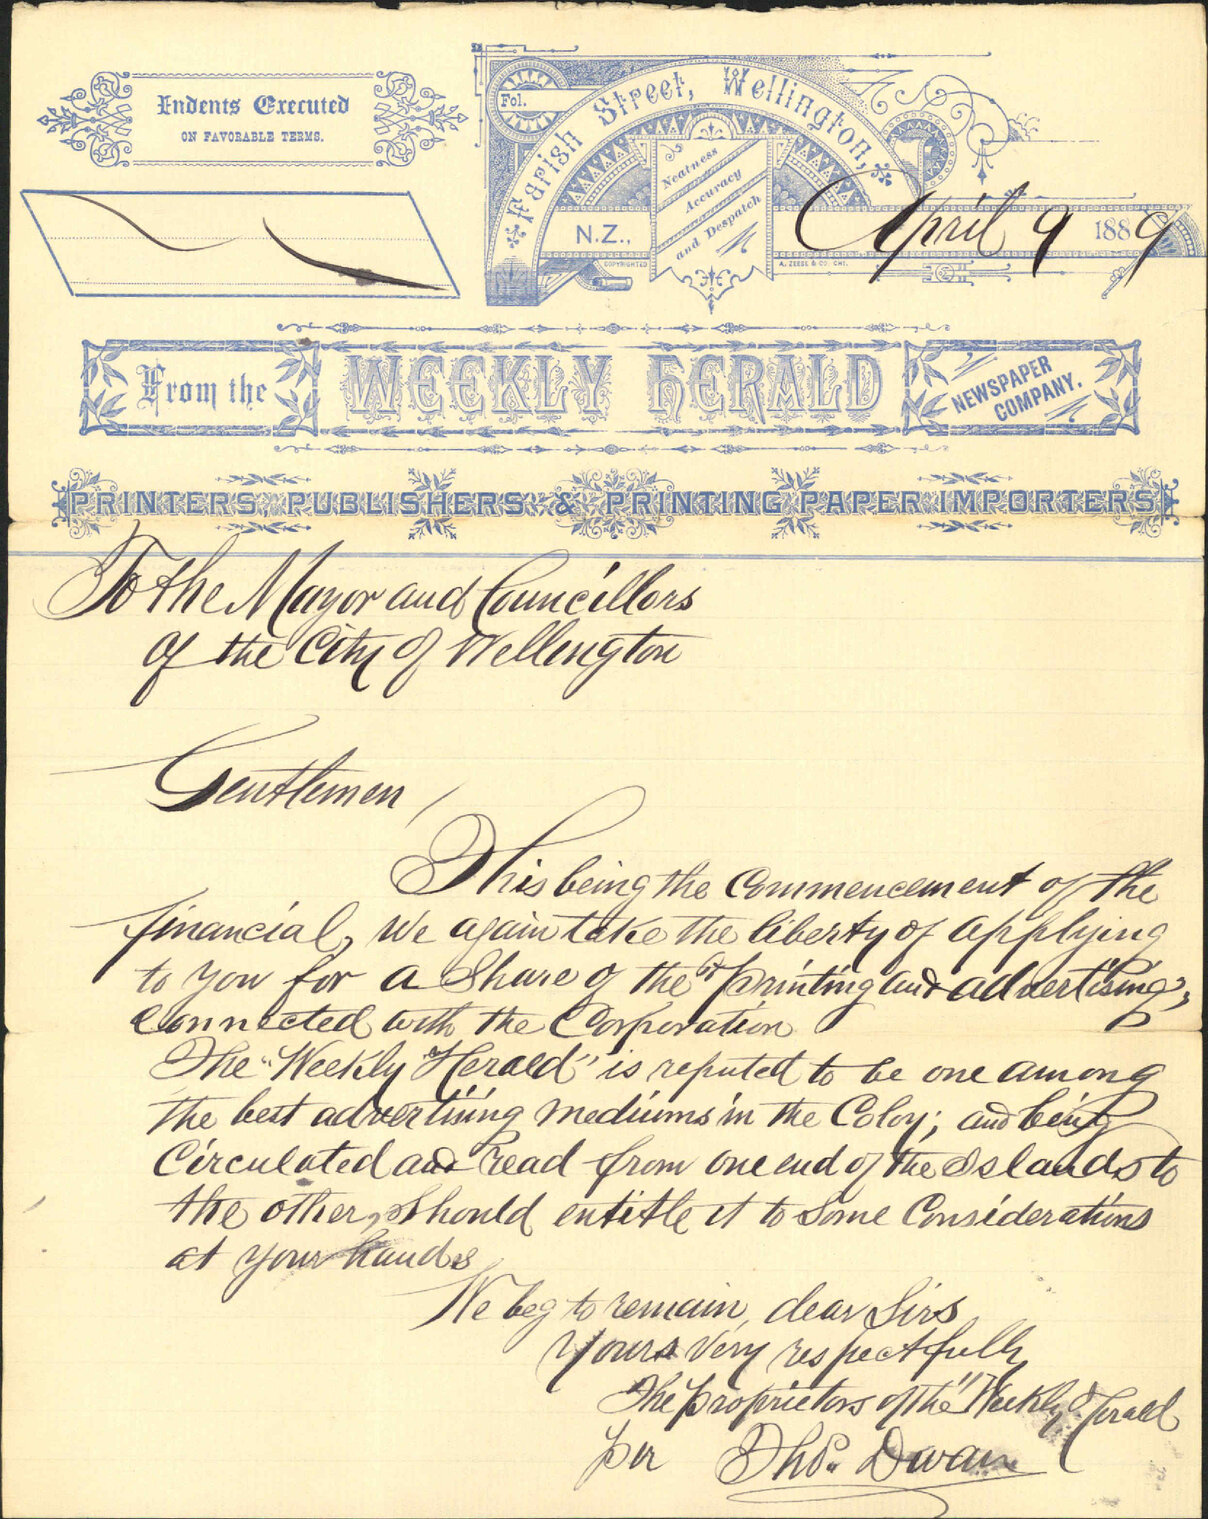 Indents Executed
ON FAVORABLE TERMS.
Fol.
Farish Street, Wellington,
N.Z.,
Neatness
Accuracy
and Despatch
COPYRIGHTED
A. ZEESE & CO. CHI.
April 9 1889
From the
WEEKLY HERALD
NEWSPAPER
COMPANY.
PRINTERS, PUBLISHERS & PRINTING PAPER IMPORTERS
To the Mayor and Councillors
of the City of Wellington
Gentlemen,
This being the Commencement of the
financial, we again take the liberty of applying
to you for a Share of the "printing and advertising",
Connected with the Corporation
The "Weekly Herald" is reputed to be one among
the best advertising mediums in the Colony; and being
Circulated and read from one end of the Islands to
the other, should entitle it to some Considerations
at your hands
We beg to remain, dear Sirs
Yours very respectfully
The proprietors of the "Weekly Herald
per Thos. Dwan